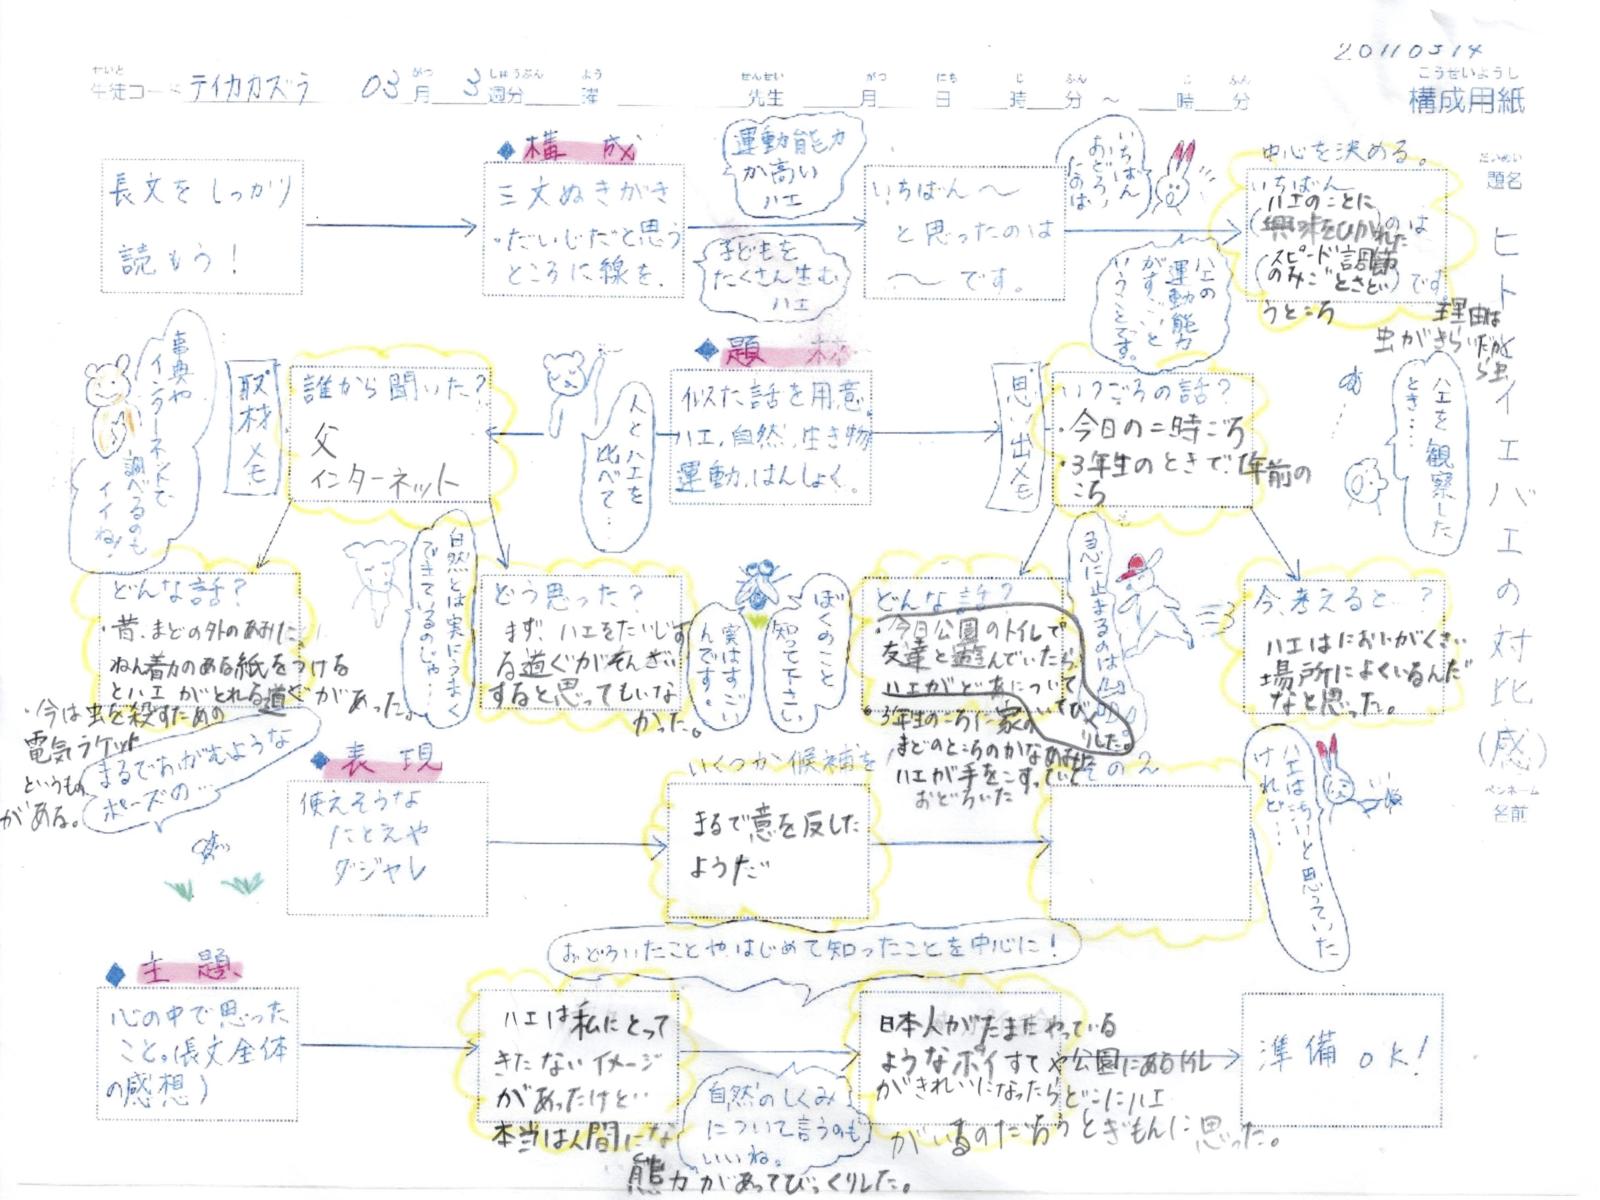 20110314
せいと
生徒コード テイカカズラ 03月 3週分 曜 先生 月 日 時 分 ~ 時 分
がつ しゅうぶん よう せんせい がつ にち じ ふん じ ふん
こうせいようし
構成用紙
だいめい
題名
ヒトとイエバエの対比(感)
ペンネーム
名前
長文をしっかり
読もう!
◆構成
三文ぬきがき
・だいじだと思う
ところに線を。
運動能力
が高い
ハエ
子どもを
たくさん生む
ハエ
いちばん~
と思ったのは
~です。
いちばん
おどろい
たのは
ハエの
運動能力
がすごいと
いうことです。
中心を決める。
いちばん
ハエのことに
(興味をひかれた)のは
(スピード調節
のみごとさとい)です。
うところ
理由は
虫がきらいだから
事典や
インターネットで
調べるのも
イイね!
取材メモ
誰から聞いた?
父
インターネット
人とハエを
比べて…
◆題材
似た話を用意。
ハエ、自然、生き物
運動、はんしょく。
思い出メモ
いつごろの話?
・今日の二時ごろ
・3年生のときで、1年前の
ころ
ハエを観察した
とき……
どんな話?
・昔、まどの外のあみに
ねん着力のある紙をつける
とハエがとれる道ぐがあった。
・今は虫を殺すための
電気ラケット
というもの
がある。
自然とは実にうまく
できているのじゃ…
どう思った?
まず、ハエをたいじす
る道ぐがそんざい
すると思ってもいな
かった。
ぼくのこと
知って下さい
実はすごい
んです。
どんな話?
・今日公園のトイレで
友達と遊んでいたら、
ハエがどあについて
いてびっくりした。
・3年生のころに家の
まどのところのかなあみに
ハエが手をこすっていて
おどろいた
急に止まるのは
今、考えると…?
ハエはにおいがくさい
場所によくいるんだ
なと思った。
まるでおがむような
ポーズの…
◆表現
使えそうな
たとえや
ダジャレ
いくつか候補を
まるで意を反した
ようだ
その2
ハエは汚いと思っていた
けれど…
おどろいたことやはじめて知ったことを中心に!
◆主題
心の中で思った
こと。(長文全体
の感想)
ハエは私にとって
きたないイメージ
があったけど…
本当は人間にな
い
能力があってびっくりした。
自然のしくみ
について言うのも
いいね。
日本人がたまにやっている
ようなポイすてや公園にあるトイレ
がきれいになったらどこにハエ
がいるのだろうとぎもんに思った。
準備OK!